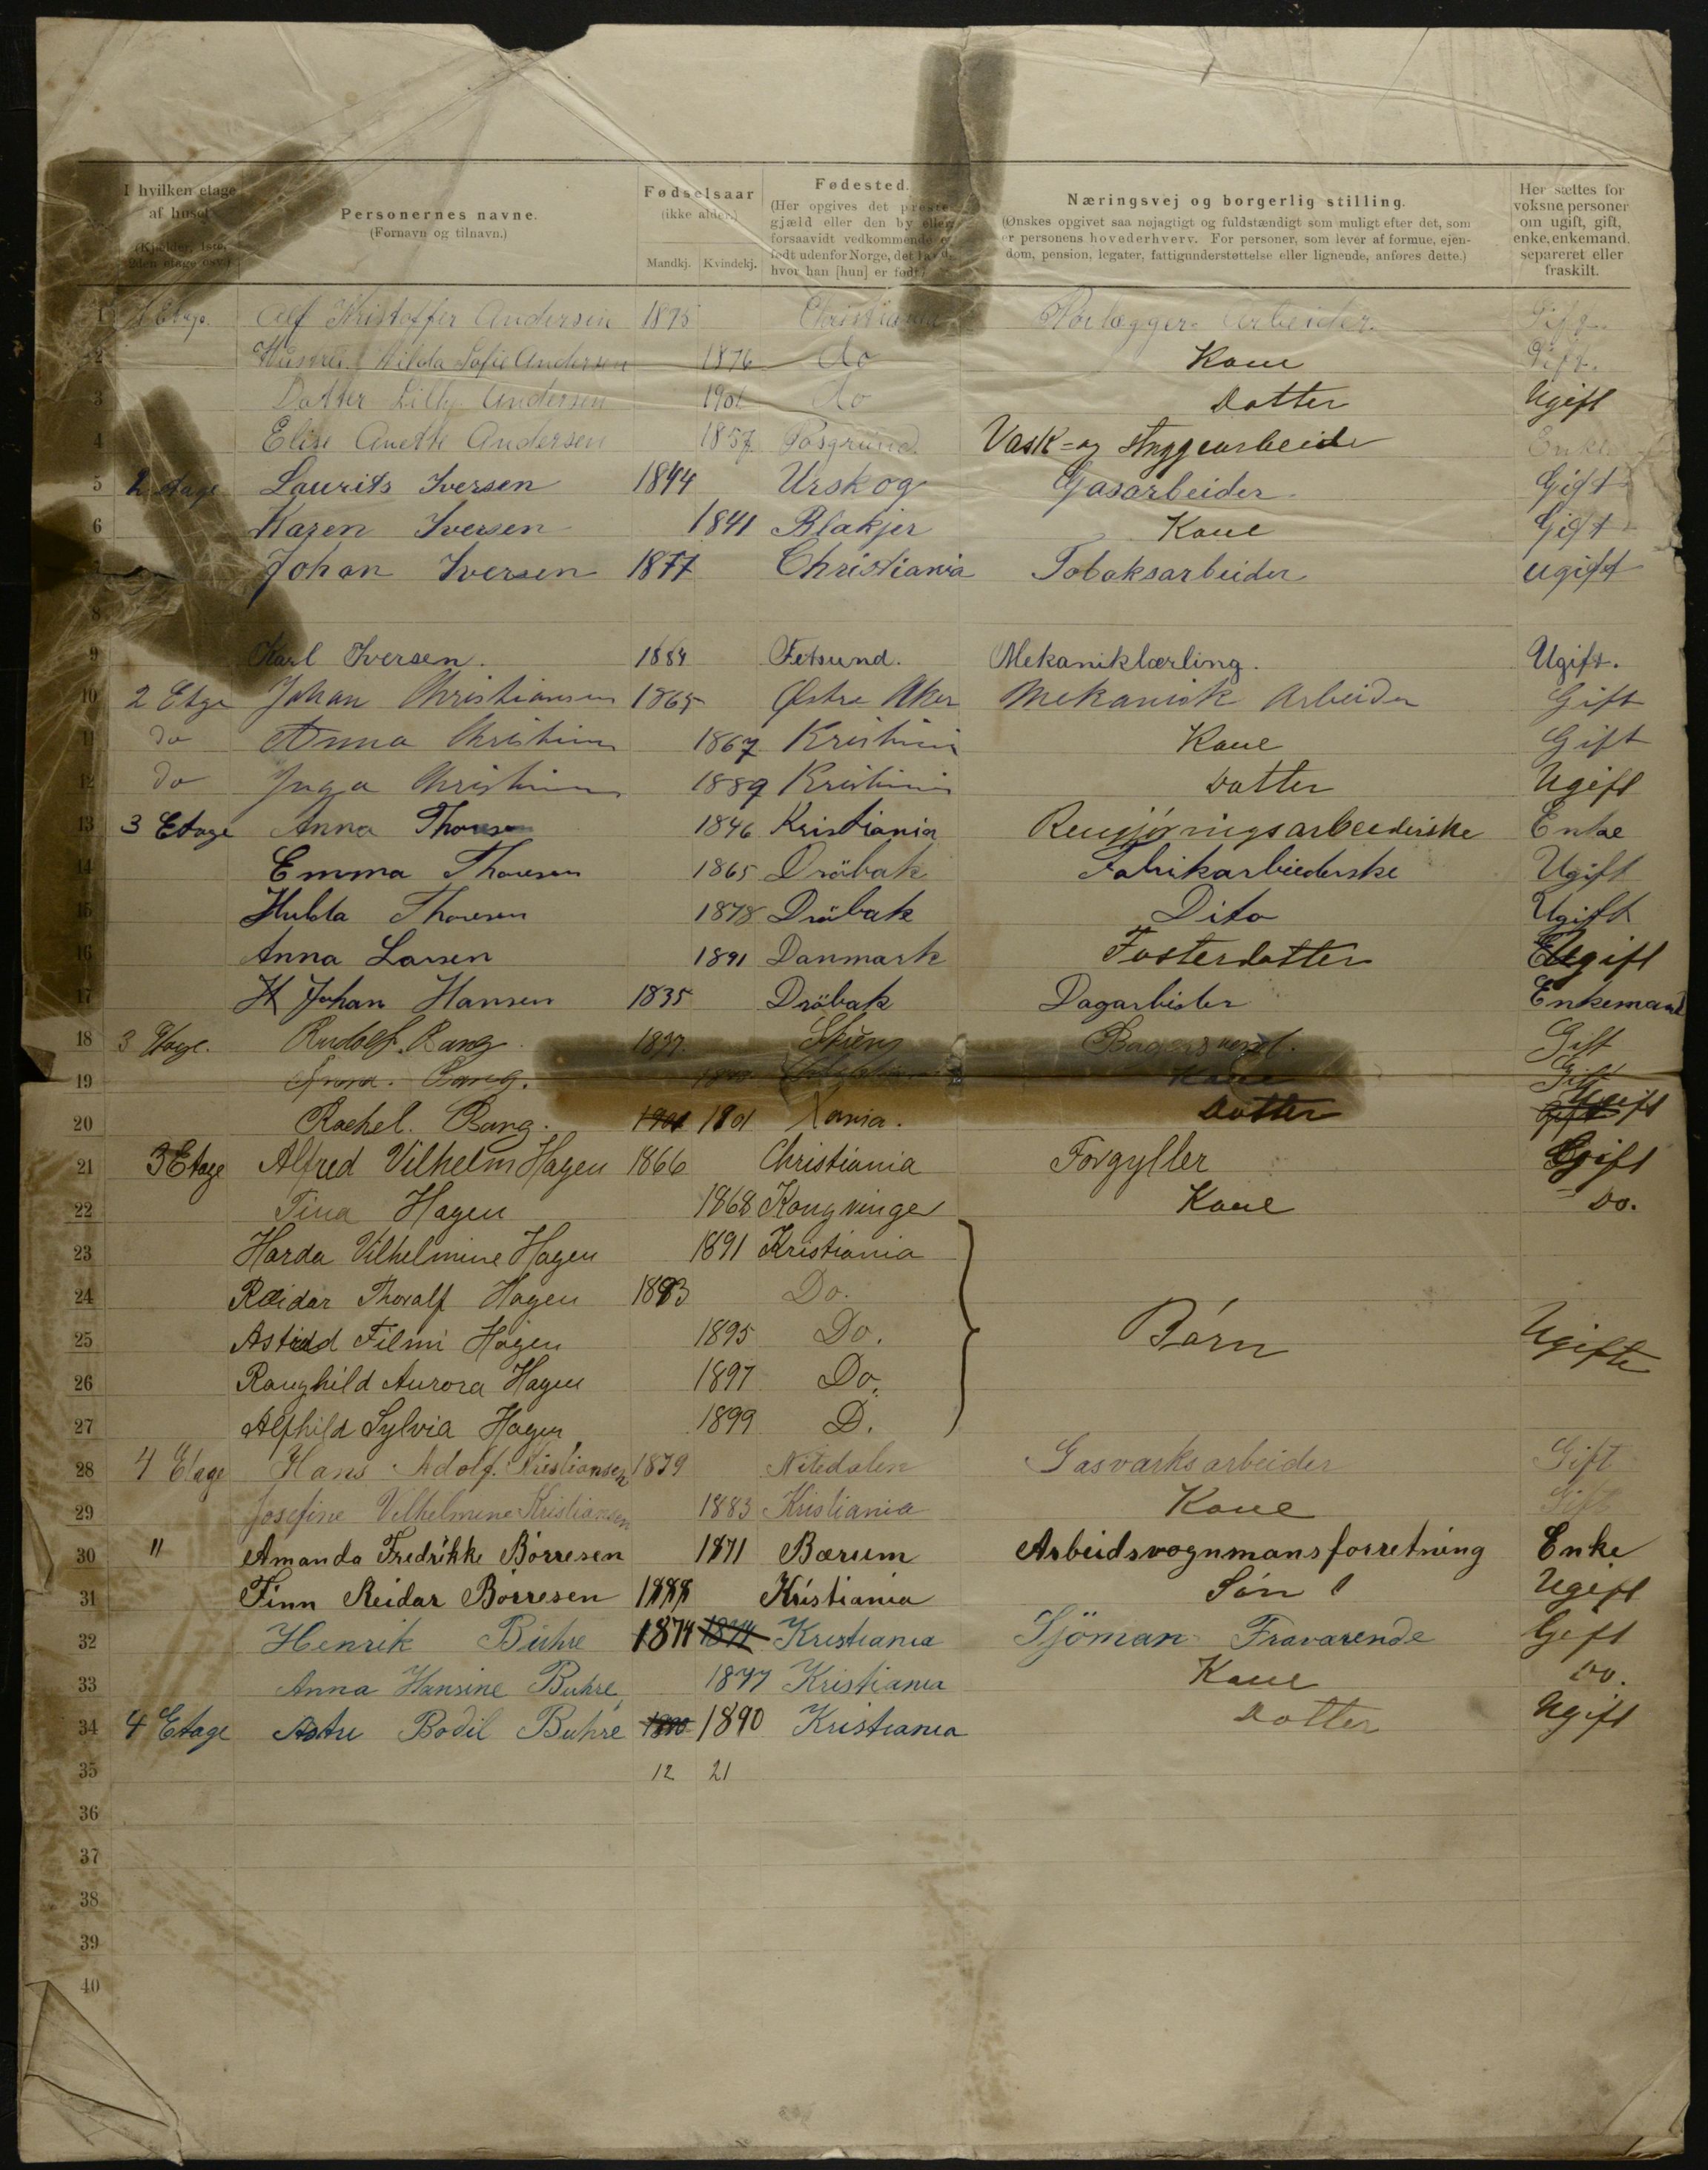 I hvilken etage af huset (Kjelder, 1ste, 2den etage osv.)
Personernes navne. (Fornavn og tilnavn.)
Fødselsaar (ikke alder.) Mandkj. Kvindekj.
Fødested. (Her opgives det preste-gjæld eller den by eller, forsaavidt vedkommende er født udenfor Norge, det land, hvor han [hun] er født.)
Næringsvej og borgerlig stilling. (Ønskes opgivet saa nøjagtigt og fuldstændigt som muligt efter det, som er personens hovederhverv. For personer, som lever af formue, ejendom, pension, legater, fattigunderstøttelse eller lignende, anføres dette.)
Her sættes for voksne personer om ugift, gift, enke, enkemand, separeret eller fraskilt.
1 1 Etage. Alf Kristoffer Andersen 1875 Christiania Rørlægger Arbeider Gift
2 Hustru Hilda Sofie Andersen 1876 do Kone Gift.
3 Datter Lilly Andersen 1901 do Datter Ugift
4 Elise Anethe Andersen 1857 Posgrund Vask- og Stryggearbeide Enke
5 2 Etage Laurits Iversen 1844 Urskog Gasarbeider Gift
6 Karen Iversen 1841 Blakjer Kone Gift
7 Johan Iversen 1877 Christiania Tobaksarbeider ugift
8
9 Karl Iversen. 1884 Fetsund. Mekaniklærling. Ugift.
10 2 Etge Johan Christiansen 1865 Østre Aker Mekanisk Arbeider Gift
11 do Anna Christians 1867 Kristiania Kone Gift
12 do Inga Christians 1889 Kristiania Datter Ugift
13 3 Etage Anna Thoresen 1846 Kristiania Rengjøringsarbeiderske Enke
14 Emma Thoresen 1865 Dröbak Fabrikarbeiderske Ugift
15 Hulda Thoresen 1878 Dröbak Dito Ugift
16 Anna Larsen 1891 Danmark Fosterdatter Ugift
17 H Johan Hansen 1835 Dröbak Dagarbeider Enkemand
18 3 Etage. Rudolf Bang 1877 Bagersvend. Gift
19 Anna. Bang. Kone Gift
20 Rachel. Bang. 1901 1901 Xania. Datter Gift Ugift
21 3 Etage Alfred Vilhelm Hagen 1866 Christiania Forgyller Gift
22 Tina Hagen 1868 Kongvinger Kone Do.
23 Harda Vilhelmine Hagen 1891 Kristiania
24 Reidar Thoralf Hagen 1893 Do.
25 Astrid Filmi Hagen 1895 Do. Børn Ugifte
26 Ranghild Aurora Hagen 1897 Do.
27 Alfhild Sylvia Hagen 1899 D.
28 4 Etage Hans Adolf. Kristiansen 1879 Nitedalen Gasværksarbeider Gift
29 Josefine Vilhelmine Kristiansen 1883 Kristiania Kone Gift
30 " Amanda Fredrikke Börresen 1871 Bærum Arbeidsvognmansforretning Enke
31 Finn Reidar Börresen 1888 Kristiania Sön Ugift
32 Henrik Buhre 1874 1874 Kristiania Sjöman Fraværende Gift
33 Anna Hansine Buhre 1877 Kristiania Kone Do.
34 4 Etage Bodil Buhre 1890 1890 Kristiania Datter Ugift
35 12 21
36
37
38
39
40